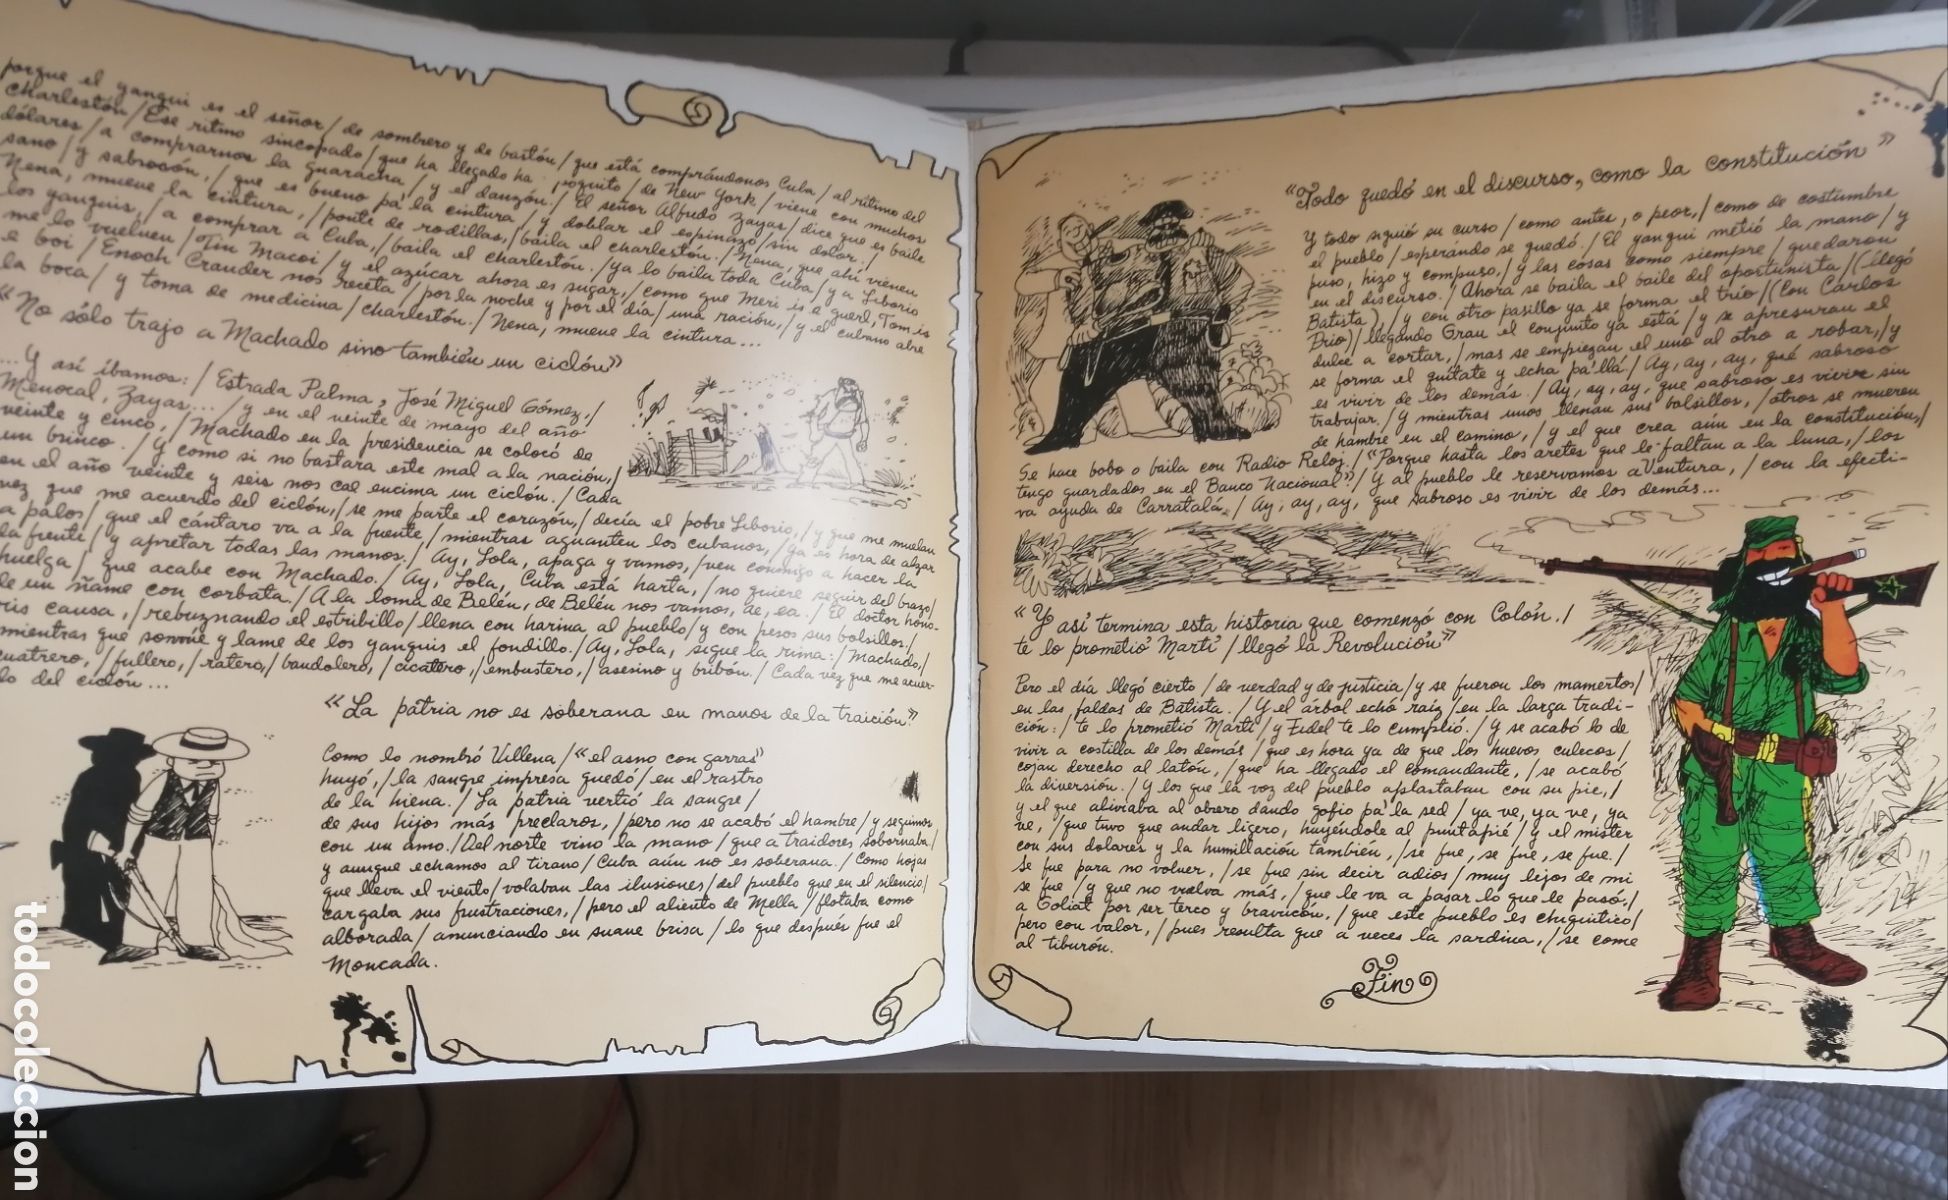 porque el yanqui es el señor / de sombrero y de bastón / que está comprándonos Cuba / al ritmo del
charlestón / Ese ritmo sincopado / que ha llegado ha poquito / de New York / viene con muchos
dólares / a comprarnos la guaracha / y el danzón. / El señor Alfredo Zayas / dice que es baile
sano / y sabrosón, / que es bueno pa' la cintura / y doblar el espinazo / sin dolor. /
Nena, mueve la cintura, / ponte de rodillas, / baila el charlestón. / Nena, que ahí vienen
los yanquis, / a comprar a Cuba, / baila el charlestón. / Ya lo baila toda Cuba / y a Liborio
me lo vuelven / Tin Macoi / y el azúcar ahora es sugar, / como que Meri is e guerl, Tom is
e boi / Enoch Crauder nos receta / por la noche y por el día / una ración, / y el cubano abre
la boca / y toma de medicina / charlestón. / Nena, mueve la cintura...
«No sólo trajo a Machado sino también un ciclón»
...Y así íbamos: / Estrada Palma, José Miguel Gómez, /
Menocal, Zayas... / y en el veinte de mayo del año
veinte y cinco, / Machado en la presidencia se colocó de
un brinco. / Y como si no bastara este mal a la nación, /
en el año veinte y seis nos cae encima un ciclón. / Cada
vez que me acuerdo del ciclón, / se me parte el corazón, / decía el pobre Liborio, / y que me muelan
a palos / que el cántaro va a la fuente / mientras aguanten los cubanos, / ya es hora de alzar
la frente / y apretar todas las manos. / Ay, Lola, apaga y vamos, / ven conmigo a hacer la
huelga / que acabe con Machado. / Ay, Lola, Cuba está harta, / no quiere seguir del brazo /
de un ñame con corbata. / A la loma de Belén, de Belén nos vamos, ae, ea. / El doctor hono-
ris causa, / rebuznando el estribillo / llena con harina al pueblo / y con pesos sus bolsillos. /
mientras que sonríe y lame de los yanquis el fondillo. / Ay, Lola, sigue la rima: / Machado, /
cuatrero, / fullero, / ratero, / bandolero, / cicatero, / embustero, / asesino y bribón. / Cada vez que me acuer-
do del ciclón...
«La patria no es soberana en manos de la traición»
Como lo nombró Villena / «el asno con garras»
huyó, / la sangre impresa quedó / en el rastro
de la hiena. / La patria vertió la sangre /
de sus hijos más preclaros, / pero no se acabó el hambre / y seguimos
con un amo. / Del norte vino la mano / que a traidores sobornaba /
y aunque echamos al tirano / Cuba aún no es soberana. / Como hojas
que lleva el viento / volaban las ilusiones / del pueblo que en el silencio /
cargaba sus frustraciones, / pero el aliento de Mella / flotaba como
alborada / anunciando en suave brisa / lo que después fue el
Moncada.
«Todo quedó en el discurso, como la constitución»
Y todo siguió su curso / como antes, o peor, / como de costumbre
el pueblo / esperando se quedó. / El yanqui metió la mano / y
puso, hizo y compuso, / y las cosas como siempre / quedaron
en el discurso. / Ahora se baila el baile del oportunista / (Llegó
Batista), / y con otro pasillo ya se forma el trío / (Con Carlos
Prío) / llegando Grau el conjunto ya está / y se apresuran el
dulce a cortar, / mas se empiezan el uno al otro a robar, / y
se forma el quítate y echa pa'llá / Ay, ay, ay, qué sabroso
es vivir de los demás. / Ay, ay, ay, que sabroso es vivir sin
trabajar. / Y mientras unos llenan sus bolsillos, / otros se mueren
de hambre en el camino, / y el que crea aún en la constitución, /
Se hace bobo o baila con Radio Reloj. / "Porque hasta los aretes que le faltan a la luna, / los
tengo guardados en el Banco Nacional" / Y al pueblo le reservamos a Ventura, / con la efecti-
va ayuda de Carratalá. / Ay, ay, ay, que sabroso es vivir de los demás...
«Y así termina esta historia que comenzó con Colón. /
te lo prometió Martí / llegó la Revolución»
Pero el día llegó cierto / de verdad y de justicia / y se fueron los mamertos /
en las faldas de Batista. / Y el árbol echó raíz / en la larga tradi-
ción: / te lo prometió Martí / y Fidel te lo cumplió. / Y se acabó lo de
vivir a costilla de los demás / que es hora ya de que los huevos culecos /
cojan derecho al latón, / que ha llegado el comandante, / se acabó
la diversión. / Y los que la voz del pueblo aplastaban con su pie, /
y el que aliviaba al obrero dando gofio pa' la sed / ya ve, ya ve, ya
ve, / que tuvo que andar ligero, huyéndole al puntapié / y el mister
con sus dolares y la humillación también, / se fue, se fue, se fue. /
Se fue para no volver, / se fue sin decir adios / muy lejos de mi
se fue / y que no vuelva más, / que le va a pasar lo que le pasó, /
a Goliat por ser terco y bravucón, / que este pueblo es chiquitico /
pero con valor, / pues resulta que a veces la sardina, / se come
al tiburón.
Fin
todocoleccion